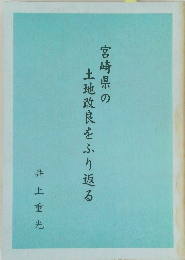 宮崎県の
土地改良をふり返る
井上重光